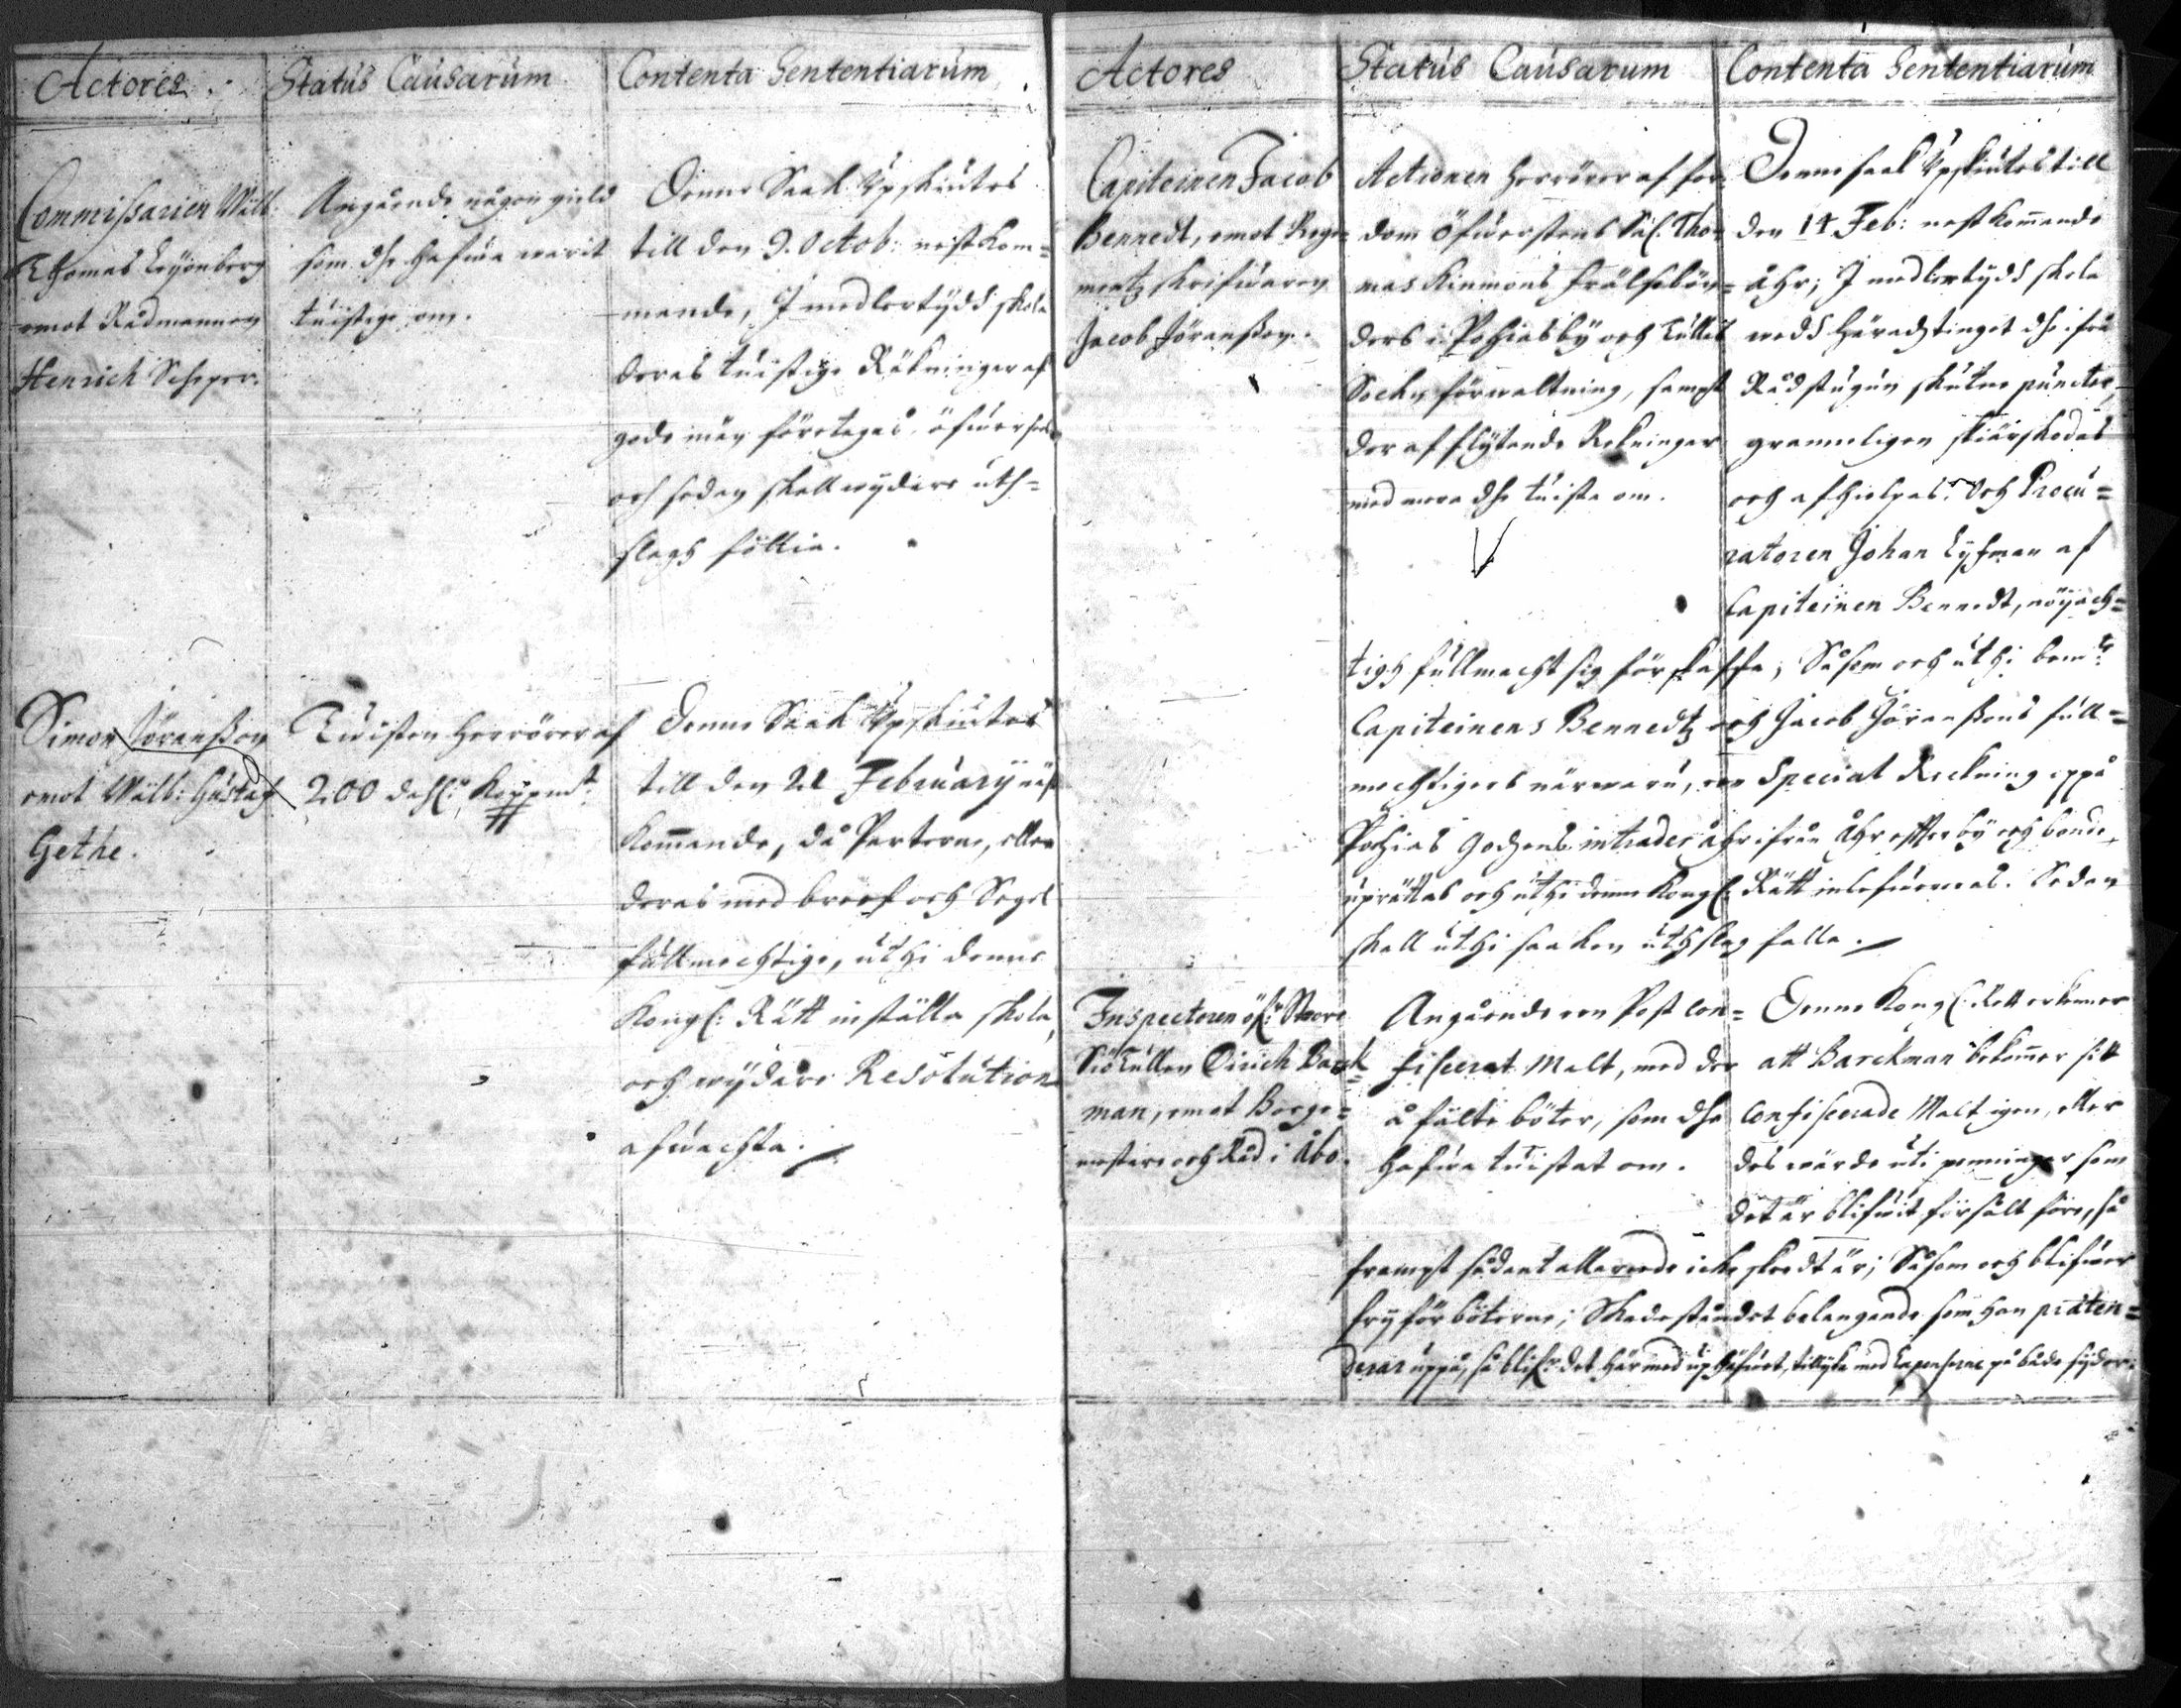 Actores.
Status Causarum
Contenta Sententiarum
Commissarien Wälb:
Thomas Leyonberg
emot Rådmannen
Henrich Scheper.
Angående någon gield
som dhe hafwa warit
tuistige om.
Denne Saak Upskiutes
till den 9. Octob: nestkom=
mande, I medlertydd skola
deras tuistige Räkninger af
gode män företagas, öfwersees
och sedan skall wydare uth=
slagh föllia.
Simon Jöransson
emot Wälb: Gustaf
Gethe.
Tuisten herrörer af
200 dahl:r Koppm:t
Denne Saak Upskiutes
till den 21 February näst
kommande, då Parterne, eller
deras med breef och Segel
fullmechtige, uthi denne
Kongl: Rätt inställa skola,
och wydare Resolution
afwachta.
Actores
Status Causarum
Contenta Sententiarum
Capiteinen Jacob
Bennedt, emot Rege=
mentz skrifwaren
Jacob Jöransson.
Actionen herrörer af for=
dom Öfwerstens Sal. Tho=
mas Kinmons frälsebön=
ders i Pohiasby och Tullis
Sochn förwaltning, sampt
deraf flytande Rekningar
med mera dhe tuista om.
Denne saak Upskiutes till
den 14 Feb: nestkommande
åhr; I medlertydd skola
wedh Häradztinget dhe ifrå
Rådstugun skutne puncter,
granneligen skiärskodas
och afhielpas. Och Procu=
ratoren Johan Lyhman af
Capiteinen Bennedt, nöyach=
tigh fullmacht sig förskaffa; Såsom och uthi bem:te
Capiteinens Bennedtz och Jacob Jöranssons full=
mechtigers närwaru, een Special Reckning oppå
Pohias Godzens intrader åhr ifrån åhr effter by och bonde,
uprättas och uthi denne Kongl: Rätt inlefwereras. Sedan
skall uthi saaken uthslag falla.
Inspectoren öf:r Stoore
Siötullen Dirich Barck=
man, emot Borge=
mestare och Råd i Åbo.
Angående een Post con=
fiscerat Malt, med der
å fälte böter, som dhe
hafwa tuistat om.
Denne Kongl: Rett erkenner
att Barckman bekommer sitt
confiscerade Malt igen, eller
des wärde uti penningar som
det är blifwit försålt före, så
frampt sådant allareede icke skedt är; Såsom och blifwer
fry för böterne; Skadeståndet belangande som han præten=
derar uppå, så blif:r det härmed uphäfwet, tillyka med Expenserne på både sydor.